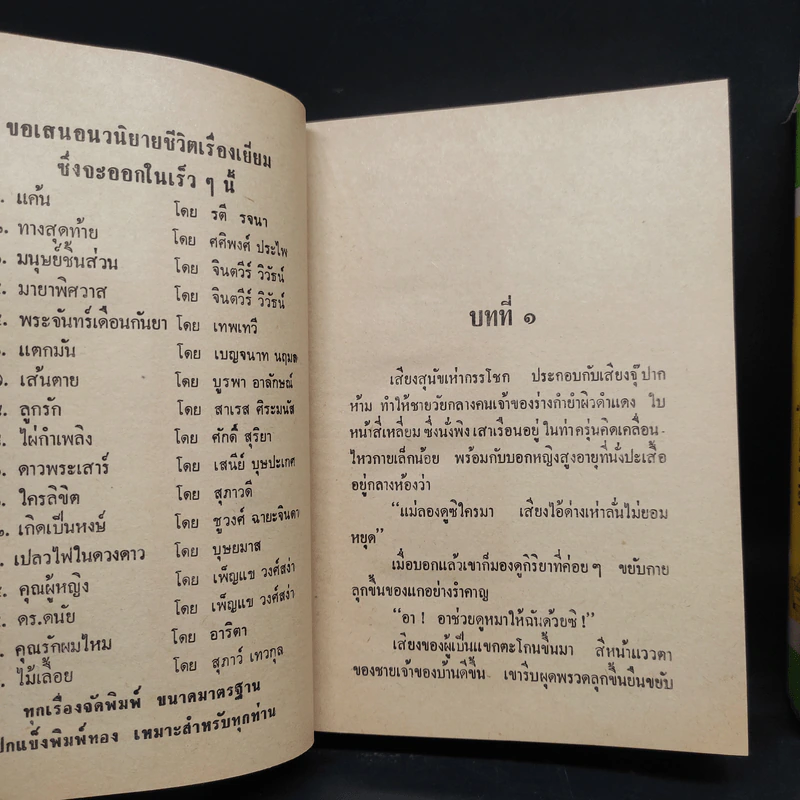 ขอเสนอนวนิยายชีวิตเรื่องเยี่ยม
ซึ่งจะออกในเร็ว ๆ นี้
แค้น โดย รตี รจนา
ทางสุดท้าย โดย ศศิพงศ์ ประไพ
มนุษย์ชิ้นส่วน โดย จินตวีร์ วิวัธน์
มายาพิศวาส โดย จินตวีร์ วิวัธน์
พระจันทร์เดือนกันยา โดย เทพเทวี
แตกมัน โดย เบญจนาท นฤมล
เส้นตาย โดย บูรพา อาลักษณ์
ลูกรัก โดย สาเรส ศิระมนัส
ไผ่กำเพลิง โดย ศักดิ์ สุริยา
ดาวพระเสาร์ โดย เสนีย์ บุษปะเกศ
ใครลิขิต โดย สุภาวดี
เกิดเป็นหงษ์ โดย ชูวงศ์ ฉายะจินดา
เปลวไฟในดวงดาว โดย บุษยมาส
คุณผู้หญิง โดย เพ็ญแข วงศ์สง่า
ดร.ดนัย โดย เพ็ญแข วงศ์สง่า
คุณรักผมไหม โดย อาริตา
ไม้เลื้อย โดย สุภาว์ เทวกุล
ทุกเรื่องจัดพิมพ์ ขนาดมาตรฐาน
ปกแข็งพิมพ์ทอง เหมาะสำหรับทุกท่าน
บทที่ ๑
เสียงสุนัขเห่ากรรโชก ประกอบกับเสียงจุ๊ปาก
ห้าม ทำให้ชายวัยกลางคนเจ้าของร่างกำยำผิวดำแดง ใบ
หน้าสี่เหลี่ยม ซึ่งนั่งพิงเสาเรือนอยู่ ในท่าครุ่นคิดเคลื่อน
ไหวกายเล็กน้อย พร้อมกับบอกหญิงสูงอายุที่นั่งปะเสื้อ
อยู่กลางห้องว่า
“แม่ลองดูซิใครมา เสียงไอ้ด่างเห่าลั่นไม่ยอม
หยุด”
เมื่อบอกแล้วเขาก็มองดูกิริยาที่ค่อยๆ ขยับกาย
ลุกขึ้นของแกอย่างรำคาญ
“อา ! อาช่วยดูหมาให้ฉันด้วยซิ !”
เสียงของผู้เป็นแขกตะโกนขึ้นมา สีหน้าแววตา
ของชายเจ้าของบ้านดีขึ้น เขารีบผุดพรวดลุกขึ้นยืนขยับ